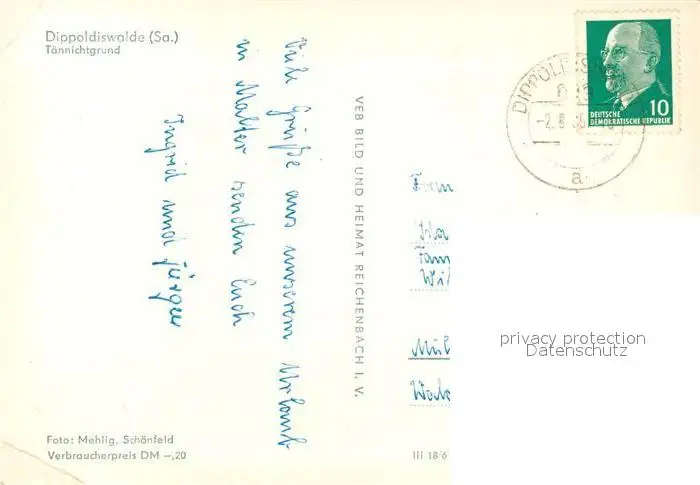 Dippoldiswalde (Sa.)
Tännichtgrund
Viele Grüße aus unserem Urlaub
in Malter senden Euch
Ingrid und Jürgen
VEB BILD UND HEIMAT REICHENBACH I. V.
DEUTSCHE
DEMOKRATISCHE REPUBLIK
10
a
Fam
Mül
privacy protection
Datenschutz
Foto: Mehlig, Schönfeld
Verbraucherpreis DM –,20
III 18/6